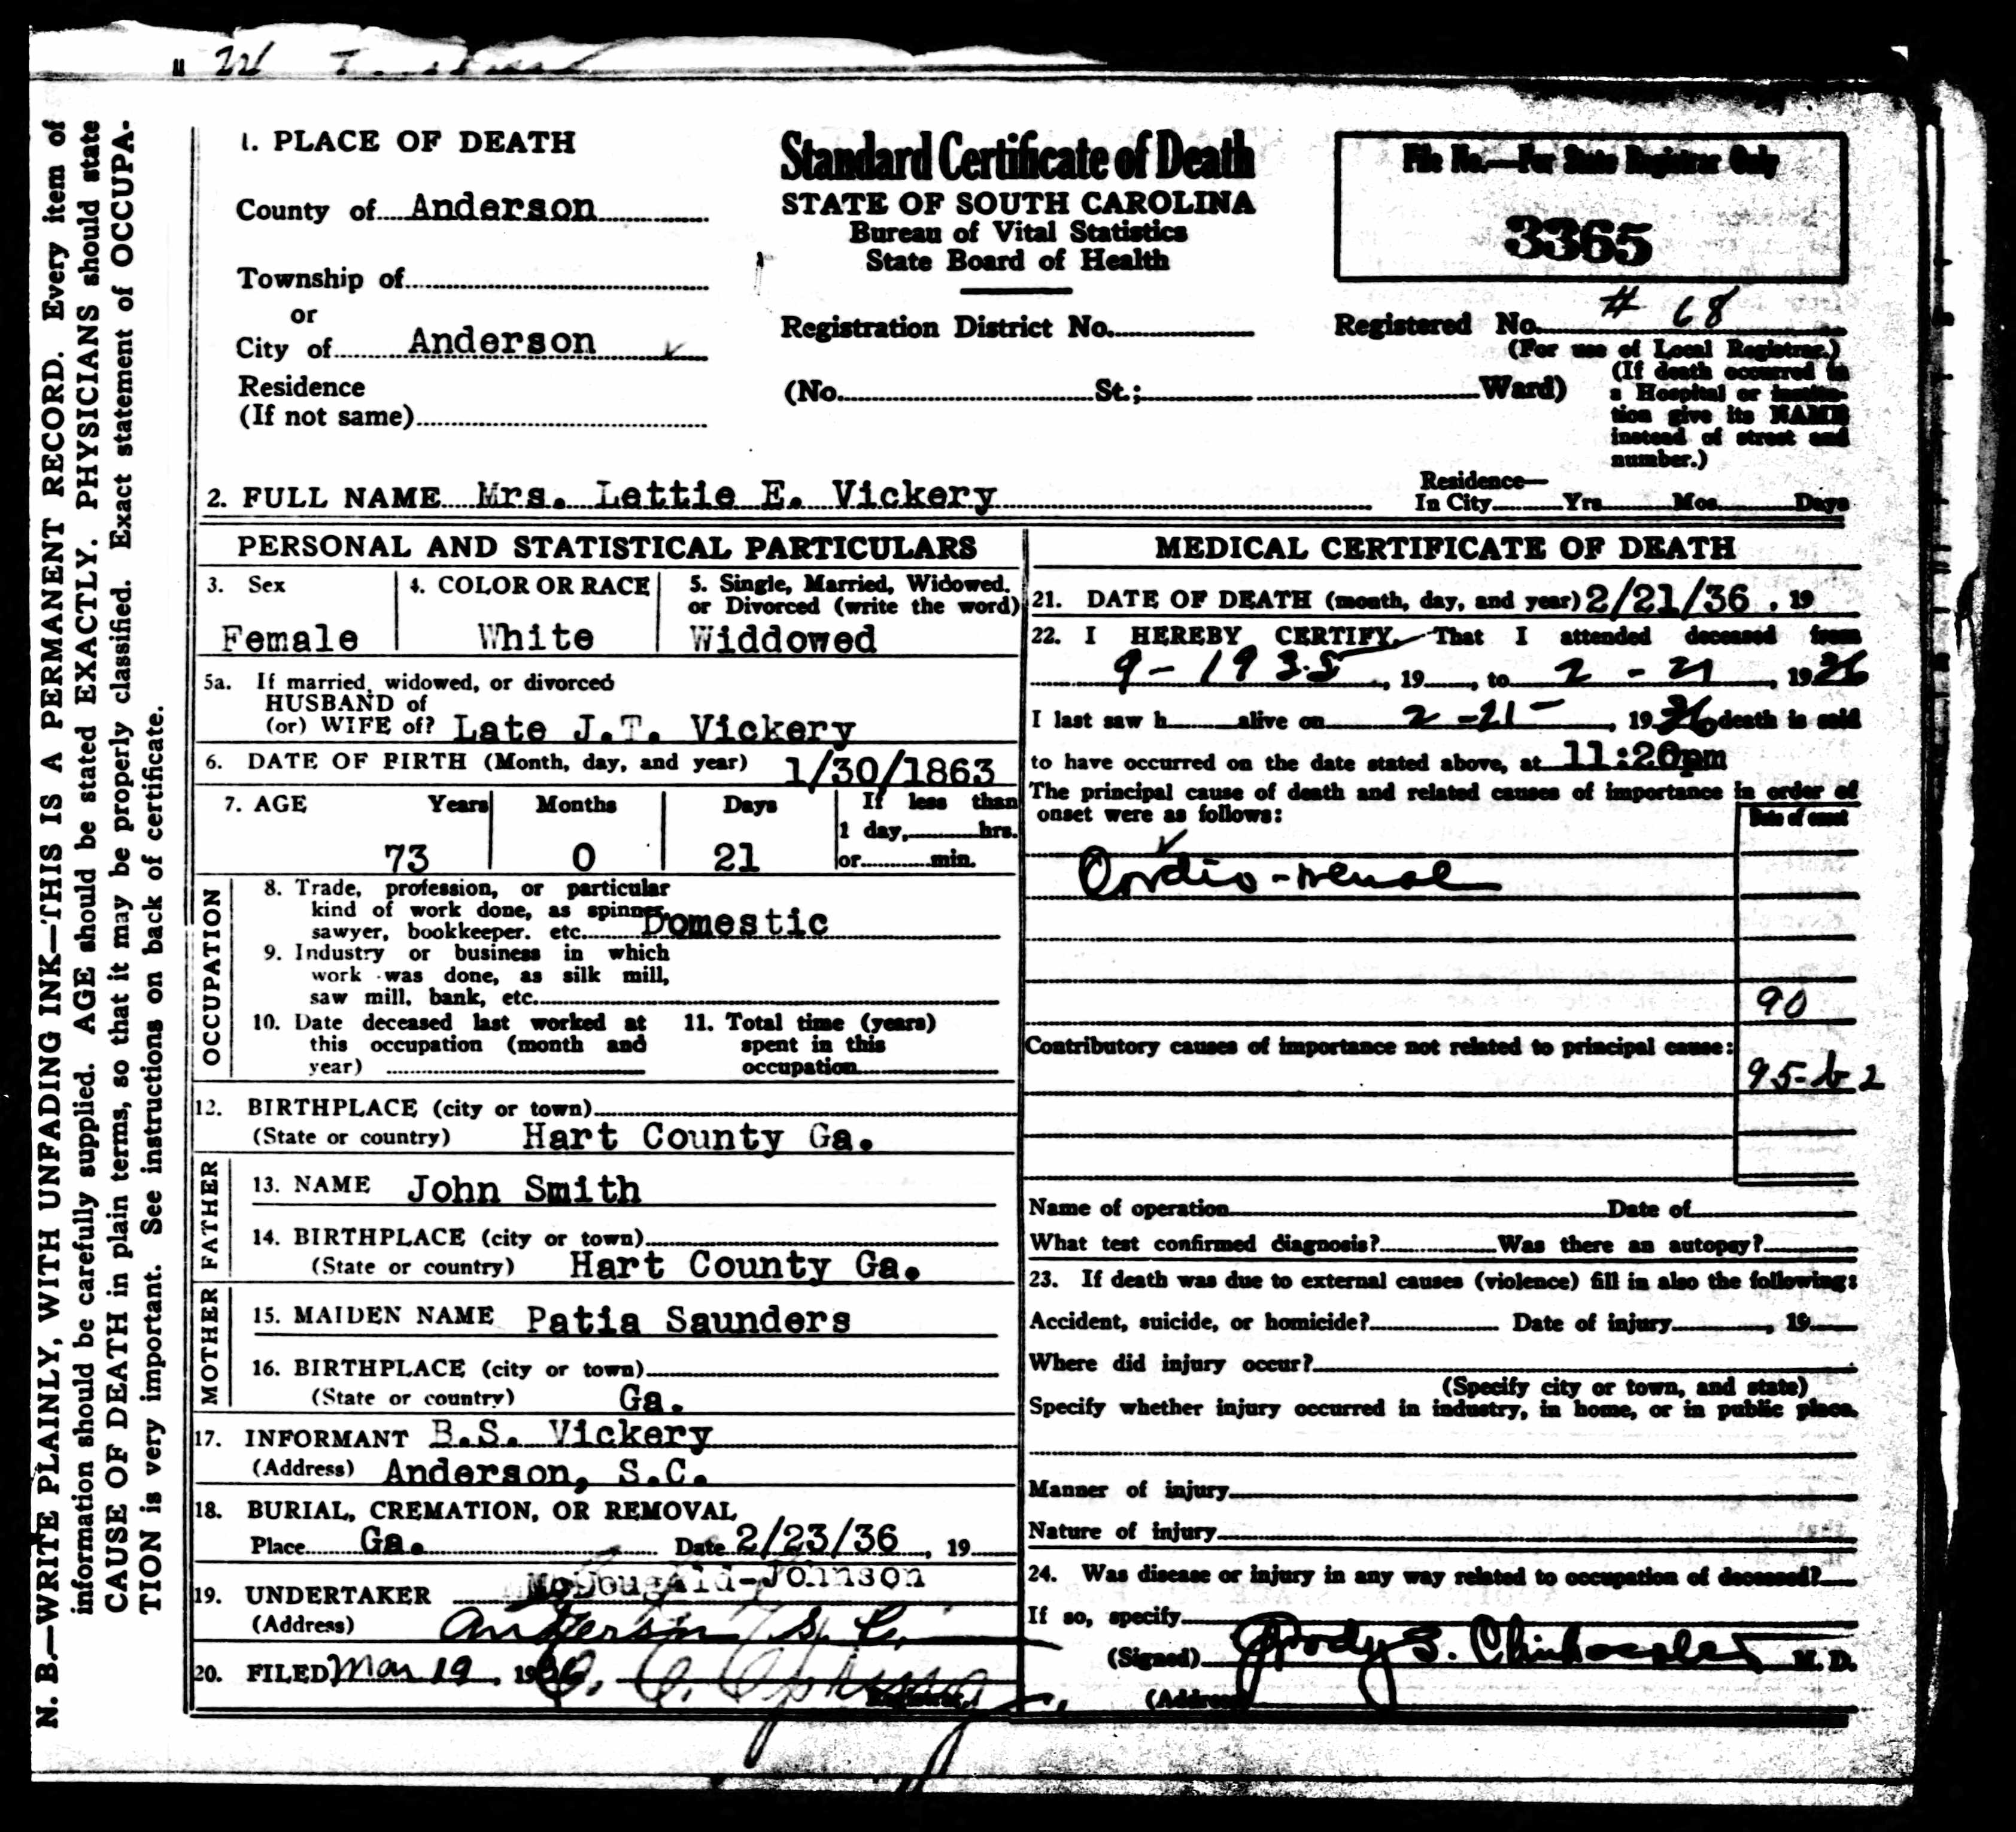 1. PLACE OF DEATH
County of Anderson
Township of
or
City of Anderson
Residence
(If not same)
Standard Certificate of Death
STATE OF SOUTH CAROLINA
Bureau of Vital Statistics
State Board of Health
Registration District No.
(No. St.; Ward)
File No.—For State Registrar Only
3365
Registered No. # 68
(For use of Local Registrar.)
(If death occurred in
a Hospital or institu-
tion give its NAME
instead of street and
number.)
2. FULL NAME Mrs. Lettie E. Vickery
Residence—
In City Yrs Mos. Days
PERSONAL AND STATISTICAL PARTICULARS
3. Sex
Female
4. COLOR OR RACE
White
5. Single, Married, Widowed,
or Divorced (write the word)
Widdowed
5a. If married, widowed, or divorced
HUSBAND of
(or) WIFE of? Late J.T. Vickery
6. DATE OF BIRTH (Month, day, and year) 1/30/1863
7. AGE Years Months Days If less than
1 day, hrs.
73 0 21 or min.
OCCUPATION
8. Trade, profession, or particular
kind of work done, as spinner,
sawyer, bookkeeper. etc. Domestic
9. Industry or business in which
work was done, as silk mill,
saw mill, bank, etc.
10. Date deceased last worked at
this occupation (month and
year)
11. Total time (years)
spent in this
occupation
12. BIRTHPLACE (city or town)
(State or country) Hart County Ga.
FATHER
13. NAME John Smith
14. BIRTHPLACE (city or town)
(State or country) Hart County Ga.
MOTHER
15. MAIDEN NAME Patia Saunders
16. BIRTHPLACE (city or town)
(State or country) Ga.
17. INFORMANT B.S. Vickery
(Address) Anderson, S.C.
18. BURIAL, CREMATION, OR REMOVAL
Place Ga. Date 2/23/36, 19
19. UNDERTAKER McDougald-Johnson
(Address) Anderson S. C.
20. FILED Mar 19, 1936
Registrar.
MEDICAL CERTIFICATE OF DEATH
21. DATE OF DEATH (month, day, and year) 2/21/36, 19
22. I HEREBY CERTIFY, That I attended deceased from
9-1935, 19 , to 2-21, 1936
I last saw h alive on 2-21-, 1936 death is said
to have occurred on the date stated above, at 11:20pm
The principal cause of death and related causes of importance in order of
onset were as follows:
Date of onset
Cardio-renal
90
Contributory causes of importance not related to principal cause:
95-b 2
Name of operation Date of
What test confirmed diagnosis? Was there an autopsy?
23. If death was due to external causes (violence) fill in also the following:
Accident, suicide, or homicide? Date of injury , 19
Where did injury occur?
(Specify city or town, and state)
Specify whether injury occurred in industry, in home, or in public place.
Manner of injury
Nature of injury
24. Was disease or injury in any way related to occupation of deceased?
If so, specify
(Signed) M. D.
(Address)
N. B.—WRITE PLAINLY, WITH UNFADING INK—THIS IS A PERMANENT RECORD. Every item of
information should be carefully supplied. AGE should be stated EXACTLY. PHYSICIANS should state
CAUSE OF DEATH in plain terms, so that it may be properly classified. Exact statement of OCCUPA-
TION is very important. See instructions on back of certificate.